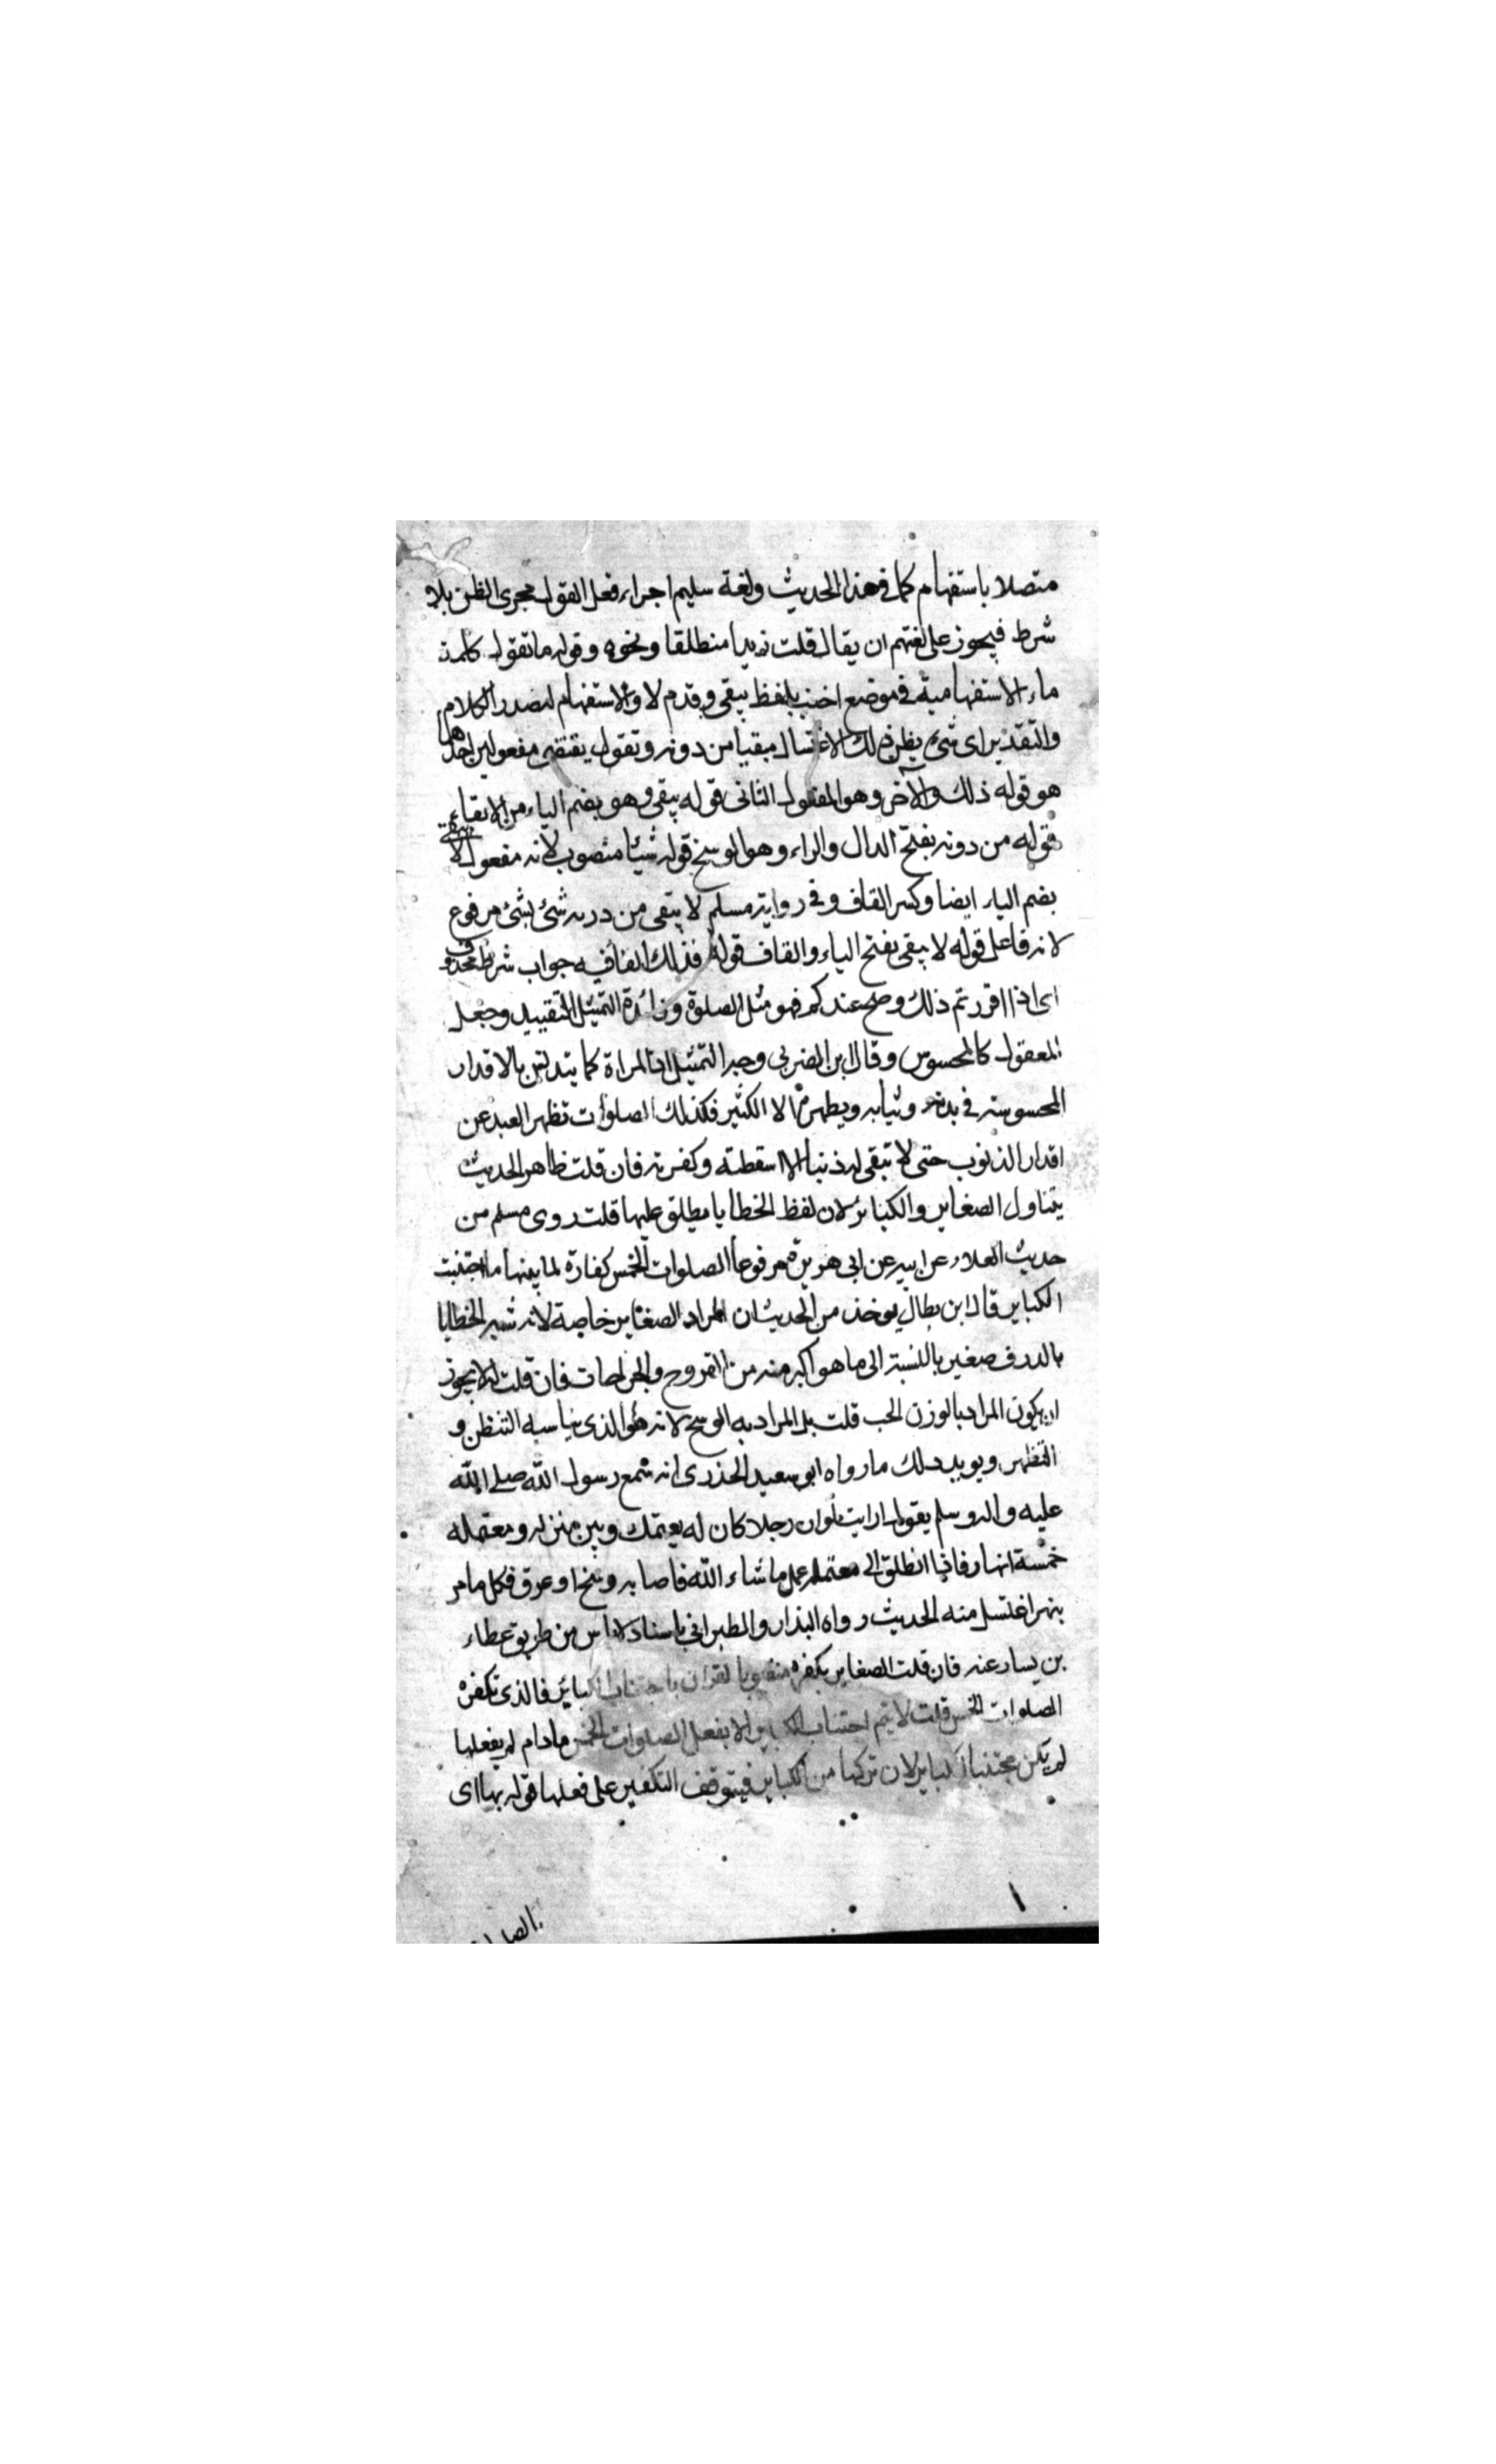 متصلا باستفهام كما في هذا الحديث ولغة سليم اجراء فعل القول مجرى الظن بلا
شرط فيجوز على لغتهم ان يقال قلت زيدا منطلقا ونحوه وقوله ما تقول كلمة
ماء الاستفهامية في موضع بلفظ يبقى وقدم لان الاستفهام له صدر الكلام
والتقدير اى شئ يظن ذلك الاغتسال مبقيا من دونه وتقول يقتضى مفعولين احدهما
هو قوله ذلك والآخر وهو المفعول الثانى قوله يبقى وهو بضم الياء من الابقاء
قوله من دونه بفتح الدال والراء وهو الوسخ قوله شيئا منصوب لانه مفعول لا يبقى
بضم الياء ايضا وكسر القاف وفى رواية مسلم لا يبقى من درنه شئ بشئ مرفوع
لانه فاعل قوله لا يبقى بفتح الياء والقاف قوله فذلك الفافيه جواب شرط محذوف
اى اذا اقررتم ذلك وصح عندكم فهو مثل الصلوة وزائدة التمثيل التقييد وجعل
المعقول كالمحسوس وقال ابن العربى وجه التمثيل ان المراة كما يتدلس بالاقدار
المحسوسة فى بدنه وثيابه ويطهره الا الكثير فكذلك الصلوات تطهر العبد عن
اقدار الذنوب حتى لا تبقى له ذنبا الا اسقطته وكفرته فان قلت ظاهر الحديث
يتناول الصغاير والكبائر لان لفظ الخطايا يطلق عليها قلت روى مسلم من
حديث العلاء عن ابيه عن ابى هريرة مرفوعا الصلوات الخمس كفارة لما بينها ما اجتنبت
الكباير قال ابن بطال يوخذ من الحديث ان المراد الصغاير خاصة لانه شبه الخطايا
بالدرن صغير باللنسبة الى ما هو اكبر منه من القروح والجراحات فان قلت لم لا يجوز
ان يكون المراد بالوزن الحب قلت بل المراد به الوسخ لانه هو الذى يناسبه التنظف و
التطهر ويويد دلك ما رواه ابو سعيد الخدرى انه سمع رسول الله صلى الله
عليه واله وسلم يقول ارايت لوان رجلا كان له يعتمل وبين منزله ومعتمله
خمسة انهار فاذا انطلق الى معتمله عمل ما شاء الله فاصابه وسخ او عرق فكل ما مر
بنهر اغتسل منه الحديث رواه البذار والطبرانى باسناد لا باس من طريق عطاء
بن يسار عنه فان قلت الصغاير مكفرة بالقران باجتناب الكبائر فالذى تكفره
الصلوات الخمس قلت لا يتم اجتناب الكباير الا بفعل الصلوات الخمس مادام لم يفعلها
لم يكن مجتنبا الكباير لان تركها من الكباير فيتوقف التكفير على فعلها قوله بها اى